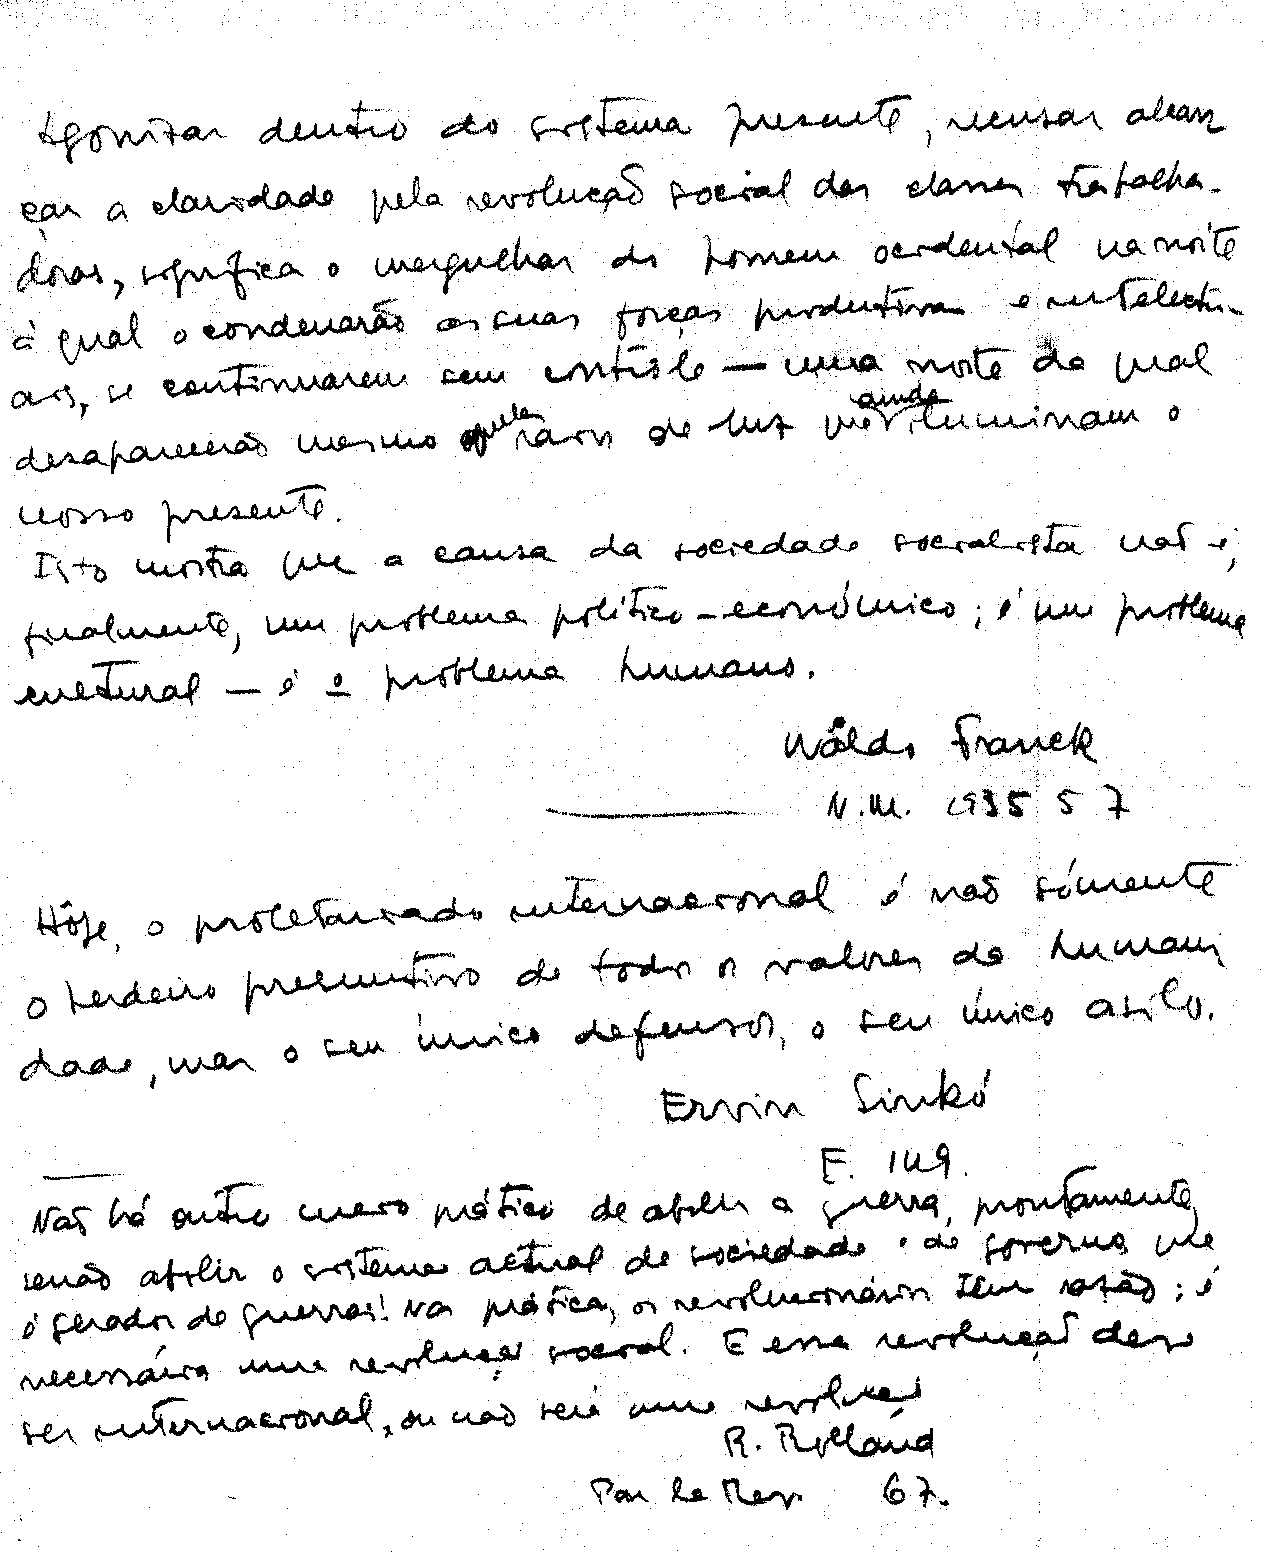 Agonizar dentro do sistema presente, recusar alcan
çar a claridade pela revolução social das classes trabalha-
doras, significa o mergulhar do homem ocidental na noite
à qual o condenarão as suas forças produtivas e intelectu-
ais, se continuarem sem contrôle — uma noite da qual
desaparecerão mesmo aqueles raios de luz que ainda iluminam o
nosso presente.
Isto mostra que a causa da sociedade socialista não é,
finalmente, um problema político-económico; é um problema
cultural — é o problema humano.
Wáldo Franck
N.M. 1935 5 7
Hôje, o proletariado internacional é não sómente
o herdeiro presuntivo de todos os valores da humani
dade, mas o seu único defensor, o seu único asilo.
Ervin Sinkó
E. 149.
Não há outro meio prático de abolir a guerra, prontamente,
senão abolir o sistema actual de sociedade e de governo que
é gerador de guerras! Na prática, os revolucionários têm razão; é
necessária uma revolução social. E essa revolução deve
ser internacional, ou não será uma revolução
R. Rolland
Par la Rev. 67.